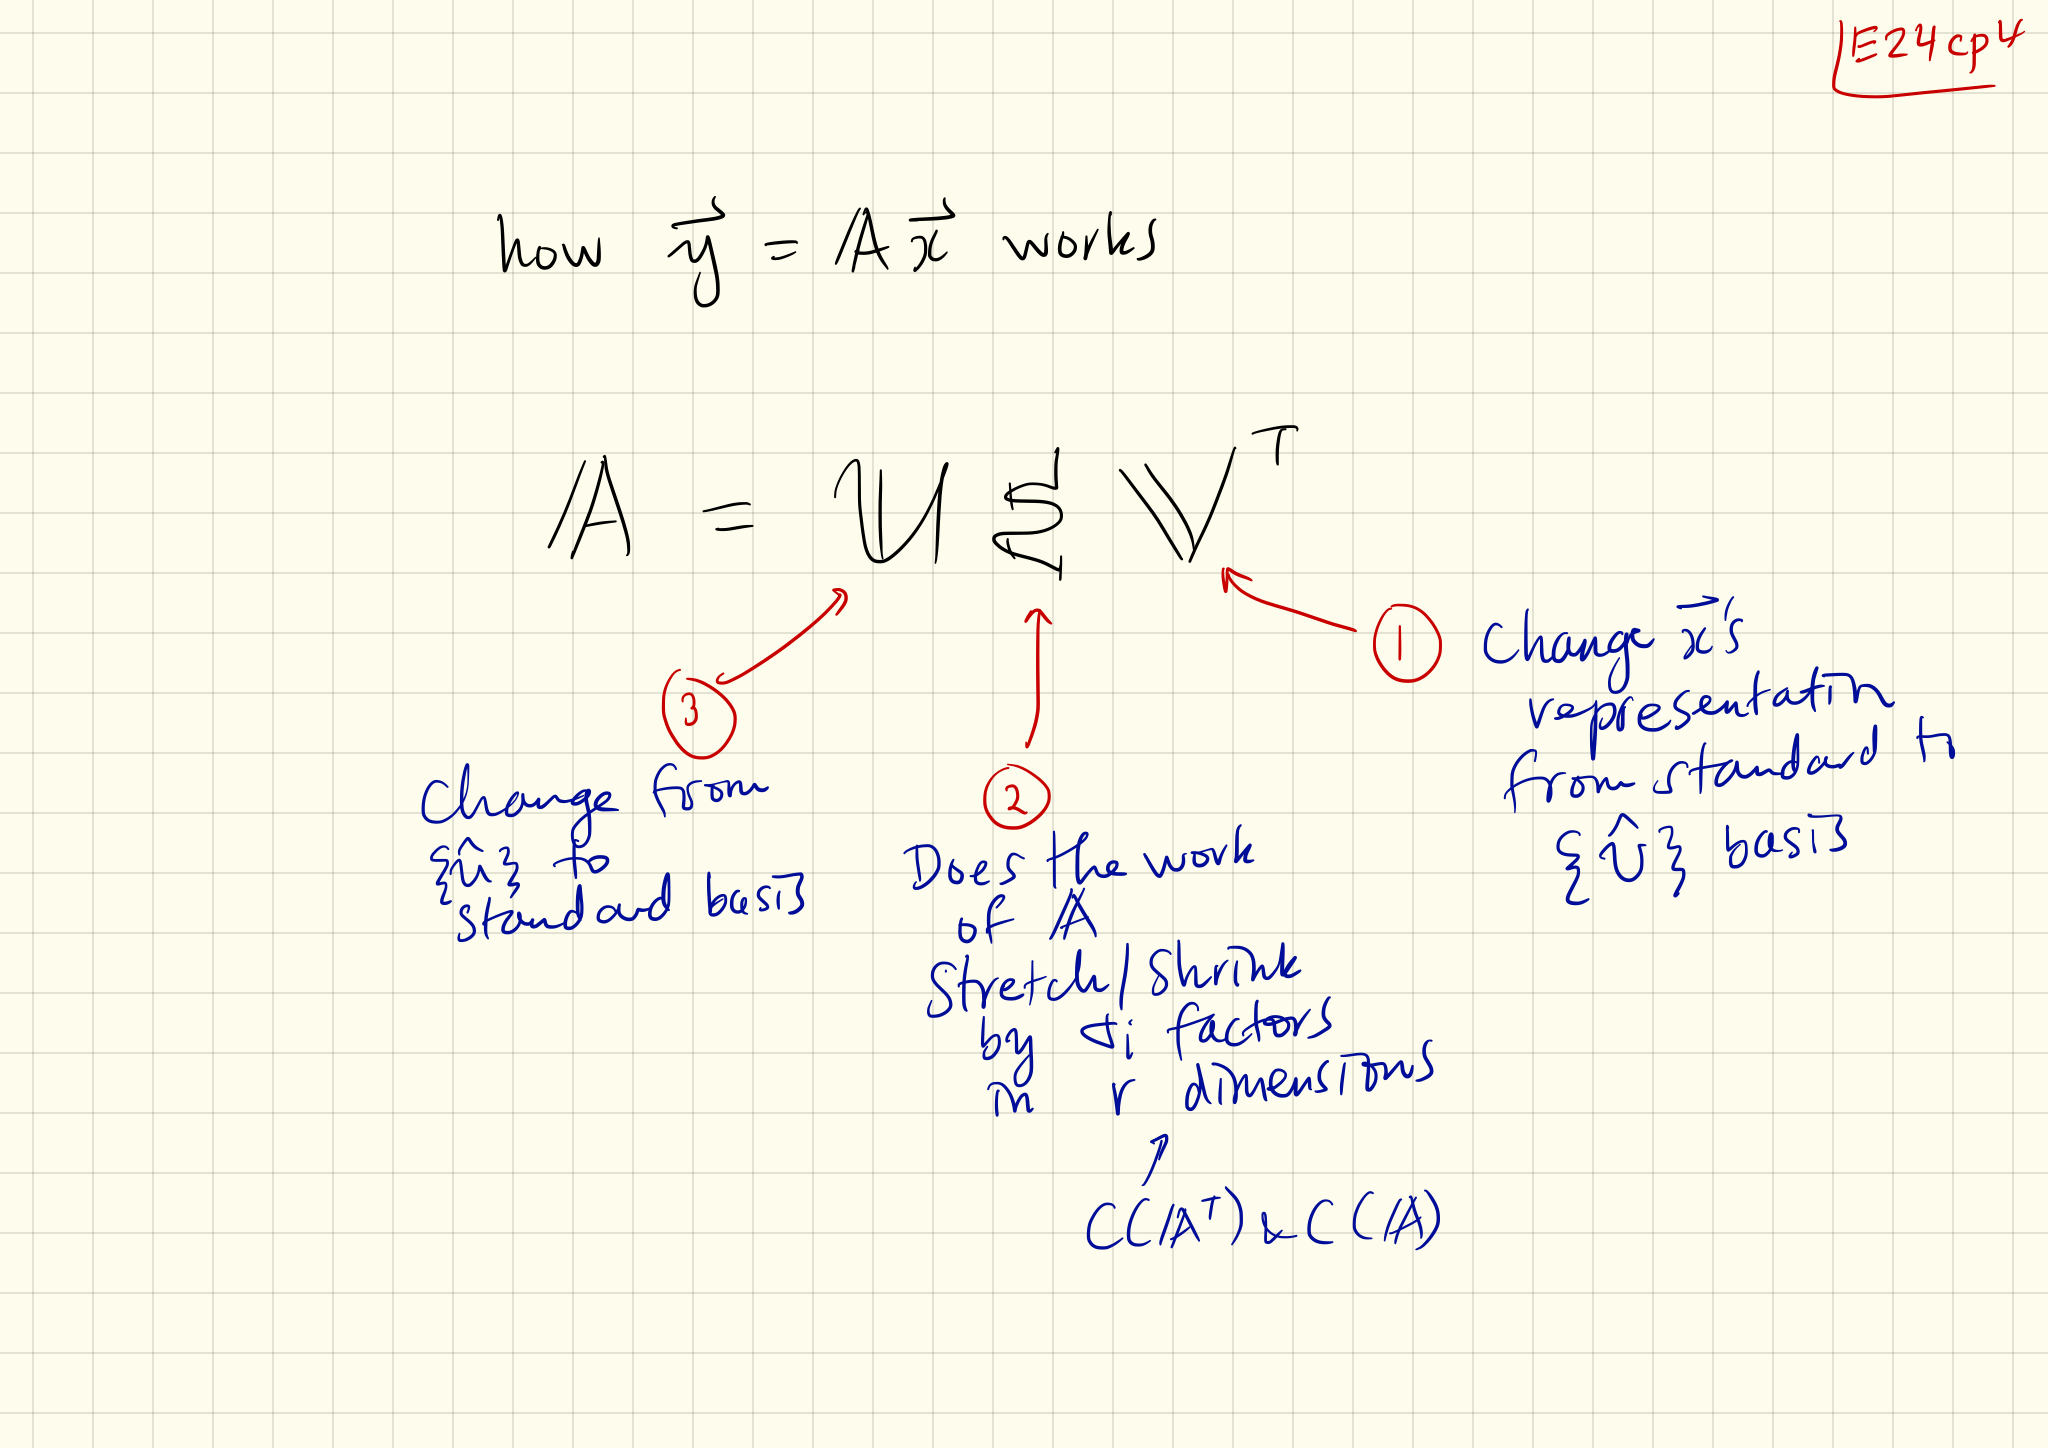 E24cp4
how y⃗ = A x⃗ works
A = U Σ V^T
1
Change x⃗'s
representation
from standard to
{v̂} basis
2
Does the work
of A
Stretch/shrink
by σi factors
in r dimensions
C(A^T) & C(A)
3
Change from
{û} to
standard basis